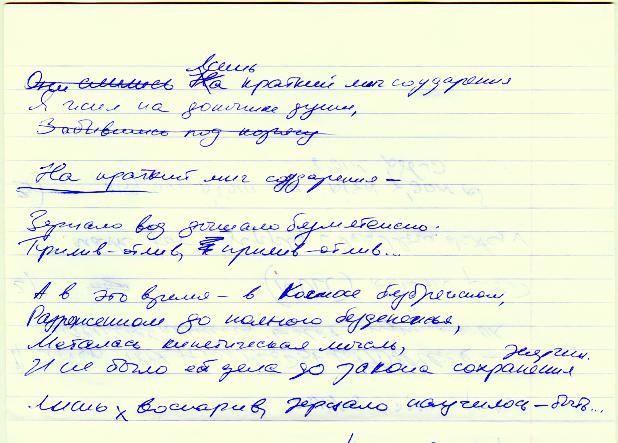 Лишь
Они слились На краткий миг соударения
Я жил на донышке души,
Забившись под корягу
На краткий миг соударения –
Зеркало вод дышало безмятежно.
Прилив-отлив, прилив-отлив...
А в это время – в Космосе безбрежном,
Разреженном до полного безденежья,
Металась кинетическая мысль,
энергии.
И не было ей дела до закона сохранения
Лишь, воспарив, зеркало научилось – быть...